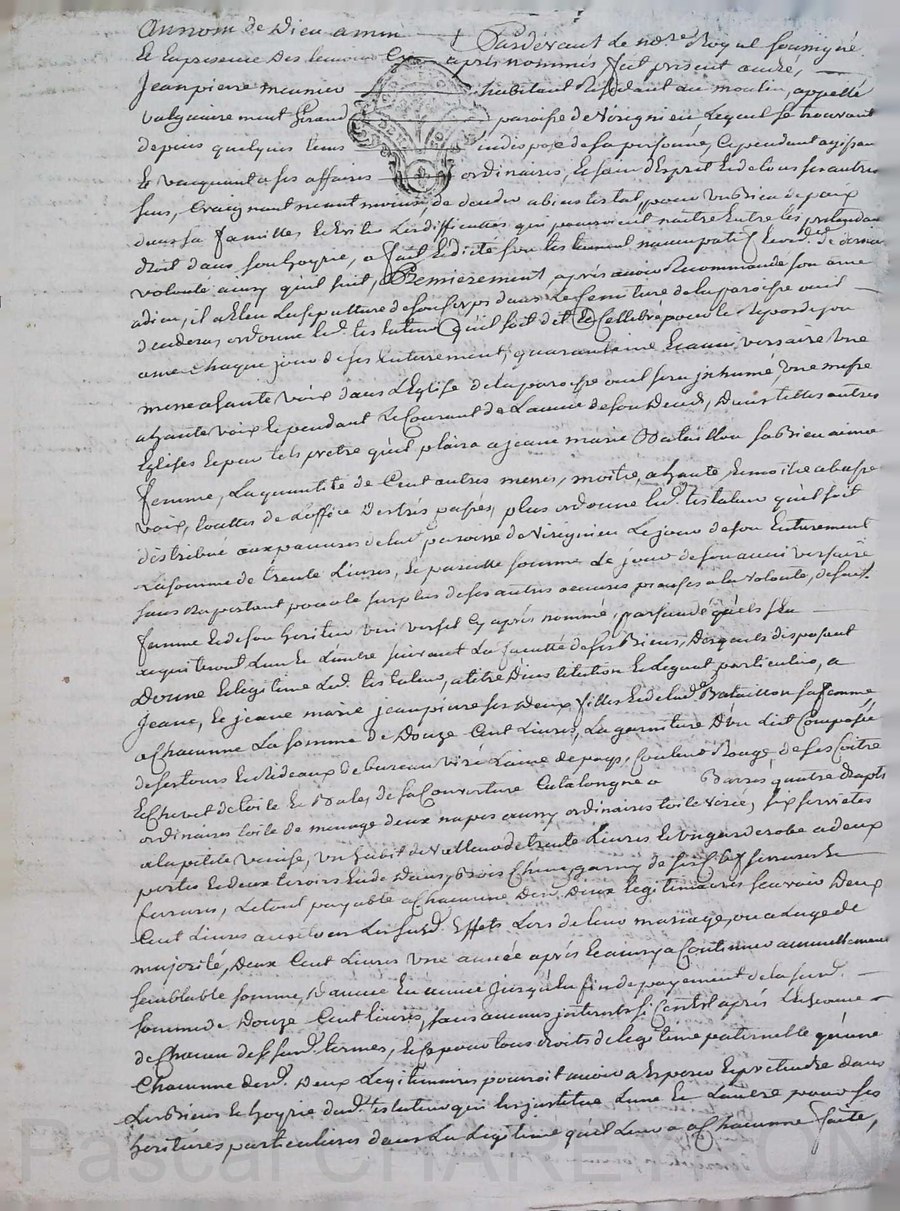 Au nom de Dieu amen † Pardevant le no.re Royal soussigné
Et En presence Des temoins Cy après nommés fut present andré,
Jean pierre meunier habitant Residant au moulin, appellé
vulgairement Girand paroisse de Virignieu Lequel se trouvant
depuis quelque tems indisposé de sa personne, Cependant agissan
Et vacquant a ses affaires ordinaires, Et sain d'Esprit Et de tous ses autres
sens, Craignant neant moins, de deceder ab intestat, pour un Bien de paix
dans sa famille, Et Eviter Les difficultés qui pourroient naitre Entre les pretendan
droit dans son hoyrie, a fait Et dicté son testament nuncupatif Et ord. de derniere
volonté ainsy qu'il suit, Premierement après avoir Recommandé son ame
a dieu, il a Elu La sepulture de son Corps dans Le Cemitiere de la paroisse ou il
decedera ordonne led. testateur qu'il soit dit Et Cellebré pour le Repos de son
ame Chaque jour de ses Enterrement, quarantaine Et anniversaire une
messe a haute voix dans L'Eglise de la paroisse ou il sera inhumé, une messe
a haute voix Et pendant Le Courant de L'année de son Deuil, Dans telles autres
Eglises Et par tels pretre qu'il plaira a jeanne marie Bataillon sa Bien aimé
femme, La quantité de Cent autres messes, moitié, a haute Et moitié a basse
voix, touttes de L'office Des trés passés, plus ordonne led. testateur qu'il soit
distribué aux pauvres de lad. paroisse de Virignieu Le jour de son Enterrement
La somme de trente Livres, Et pareille somme Le jour de son anniversaire
sans Rapportant pour le surplus de ses autres œuvres pieuses a la volonté, de sad.
femme Et de son heritier universel Cy après nommé, persuadé qu'ils s'en
acquiteront L'un Et L'autre suivant La faculté de ses Biens, Desquels disposant
Donne Et legue Led. testateur, a titre D'institution Et Legat particulier, a
Jeanne, Et jeanne marie jeanpierre ses Deux filles Et de lad. Bataillon sa femme
a Chacunne La somme de Douze Cent Livres, La garniture D'un Lict Composée
de ses tours Et Rideaux de bureau viré Laine de pays, Couleur Rouge de ses Coitre
Et Chevet de toile Et Bales, de sa Couverture Catalongne a Barres quatre draps
ordinaires toile de menage deux napes aussy ordinaires toile Virée, six serviettes
a la petite venise, un habit de valleur de trente Livres Et un garderobe a deux
portes Et deux tiroirs En dedans, bois Chene garny de ses Clefs serrures Et
ferrures, Le tout payable a Chacunne Desd. Deux legitimaires sçavoir Deux
Cent Livres avec les susd. Effets Lors de leur mariage, ou a L'age de
majorité, Deux Cent Livres une année après Et ainsy a Continuer annuellement
semblable somme, d'année En année jusqu'a fin de payement de la susd.
somme de Douze Cent Livres, sans aucuns interests si Ce n'est après L'echeance
de Chacun desd. susd. termes, Et Ce pour tous droits de Legitime paternelle qu'une
Chacunne desd. Deux Legitimaires pourroit avoir a Esperer Et pretendre dans
Les Biens Et hoyrie dud. testateur qui Les institue L'une Et L'autre pour ses
heritieres particulieres dans La Legitime qu'il Leur a a Chacunne faite,
Pascal CHAREYRON